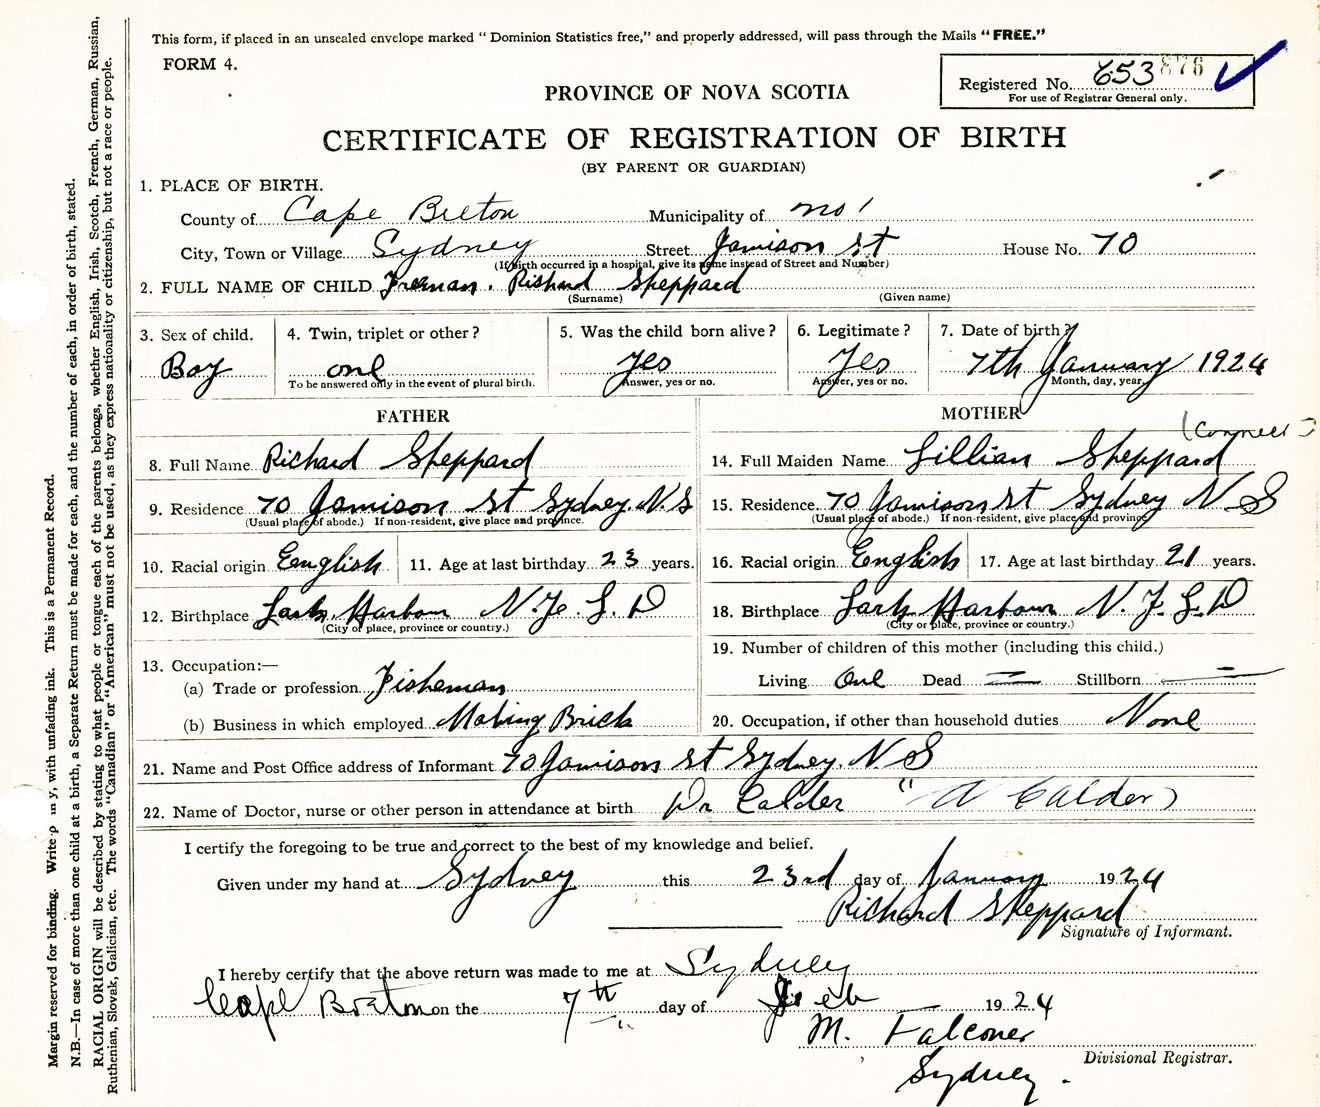 This form, if placed in an unsealed envelope marked “ Dominion Statistics free,” and properly addressed, will pass through the Mails “ FREE.”
FORM 4.
Registered No. 653 876
For use of Registrar General only.
PROVINCE OF NOVA SCOTIA
CERTIFICATE OF REGISTRATION OF BIRTH
(BY PARENT OR GUARDIAN)
1. PLACE OF BIRTH.
County of Cape Breton Municipality of no 1
City, Town or Village Sydney Street Jamison St House No. 70
(If birth occurred in a hospital, give its name instead of Street and Number)
2. FULL NAME OF CHILD Freeman. Richard Sheppard
(Surname) (Given name)
3. Sex of child. 4. Twin, triplet or other ? 5. Was the child born alive ? 6. Legitimate ? 7. Date of birth ?
Boy one Yes Yes 7th January 1924
To be answered only in the event of plural birth. Answer, yes or no. Answer, yes or no. Month, day, year.
FATHER MOTHER
8. Full Name Richard Sheppard 14. Full Maiden Name Lillian Sheppard (Correct)
9. Residence 70 Jamison St Sydney. N.S 15. Residence 70 Jamison St Sydney N S
(Usual place of abode.) If non-resident, give place and province. (Usual place of abode.) If non-resident, give place and province
10. Racial origin Eenglish 11. Age at last birthday 23 years. 16. Racial origin Eenglish 17. Age at last birthday 21 years.
12. Birthplace Lark Harbour N. Fe. L D 18. Birthplace Lark Harbour N. F. L D
(City or place, province or country.) (City or place, province or country.)
13. Occupation:— 19. Number of children of this mother (including this child.)
(a) Trade or profession Fisheman Living One Dead Stillborn
(b) Business in which employed Making Brick 20. Occupation, if other than household duties None
21. Name and Post Office address of Informant 70 Jamison St Sydney. N S
22. Name of Doctor, nurse or other person in attendance at birth Dr Calder " Calder)
I certify the foregoing to be true and correct to the best of my knowledge and belief.
Given under my hand at Sydney this 23rd day of January 1924
Richard Sheppard
Signature of Informant.
I hereby certify that the above return was made to me at Sydney
Cape Breton on the 7th day of Feb 1924
M. Falconer
Divisional Registrar.
Sydney.
Margin reserved for binding. Write with unfading ink. This is a Permanent Record.
N.B.—In case of more than one child at a birth, a Separate Return must be made for each, and the number of each, in order of birth, stated.
RACIAL ORIGIN will be described by stating to what people or tongue each of the parents belongs, whether English, Irish, Scotch, French, German, Russian,
Ruthenian, Slovak, Galician, etc. The words “Canadian” or “American” must not be used, as they express nationality or citizenship, but not a race or people.